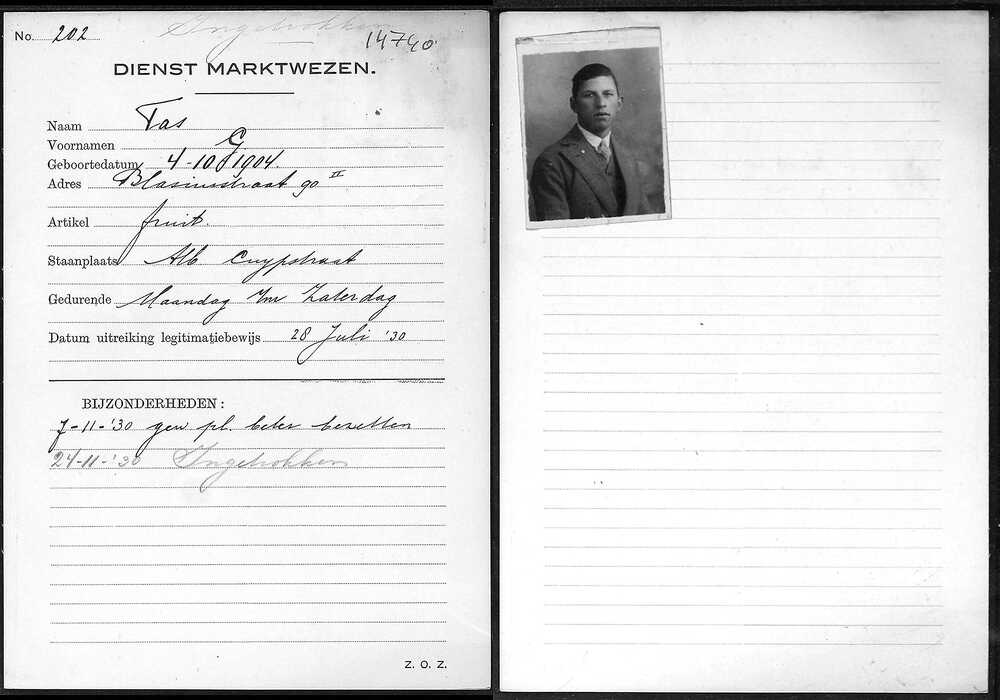 No. 202
Ingetrokken
14740
DIENST MARKTWEZEN.
Naam Tas
Voornamen G
Geboortedatum 4-10 1904.
Adres Blasiusstraat 90 II
Artikel fruit.
Staanplaats Alb Cuypstraat
Gedurende Maandag t/m Zaterdag
Datum uitreiking legitimatiebewijs 28 Juli '30
BIJZONDERHEDEN:
7-11-'30 gew pl. beter bezetten
24-11-'30 Ingetrokken
Z. O. Z.